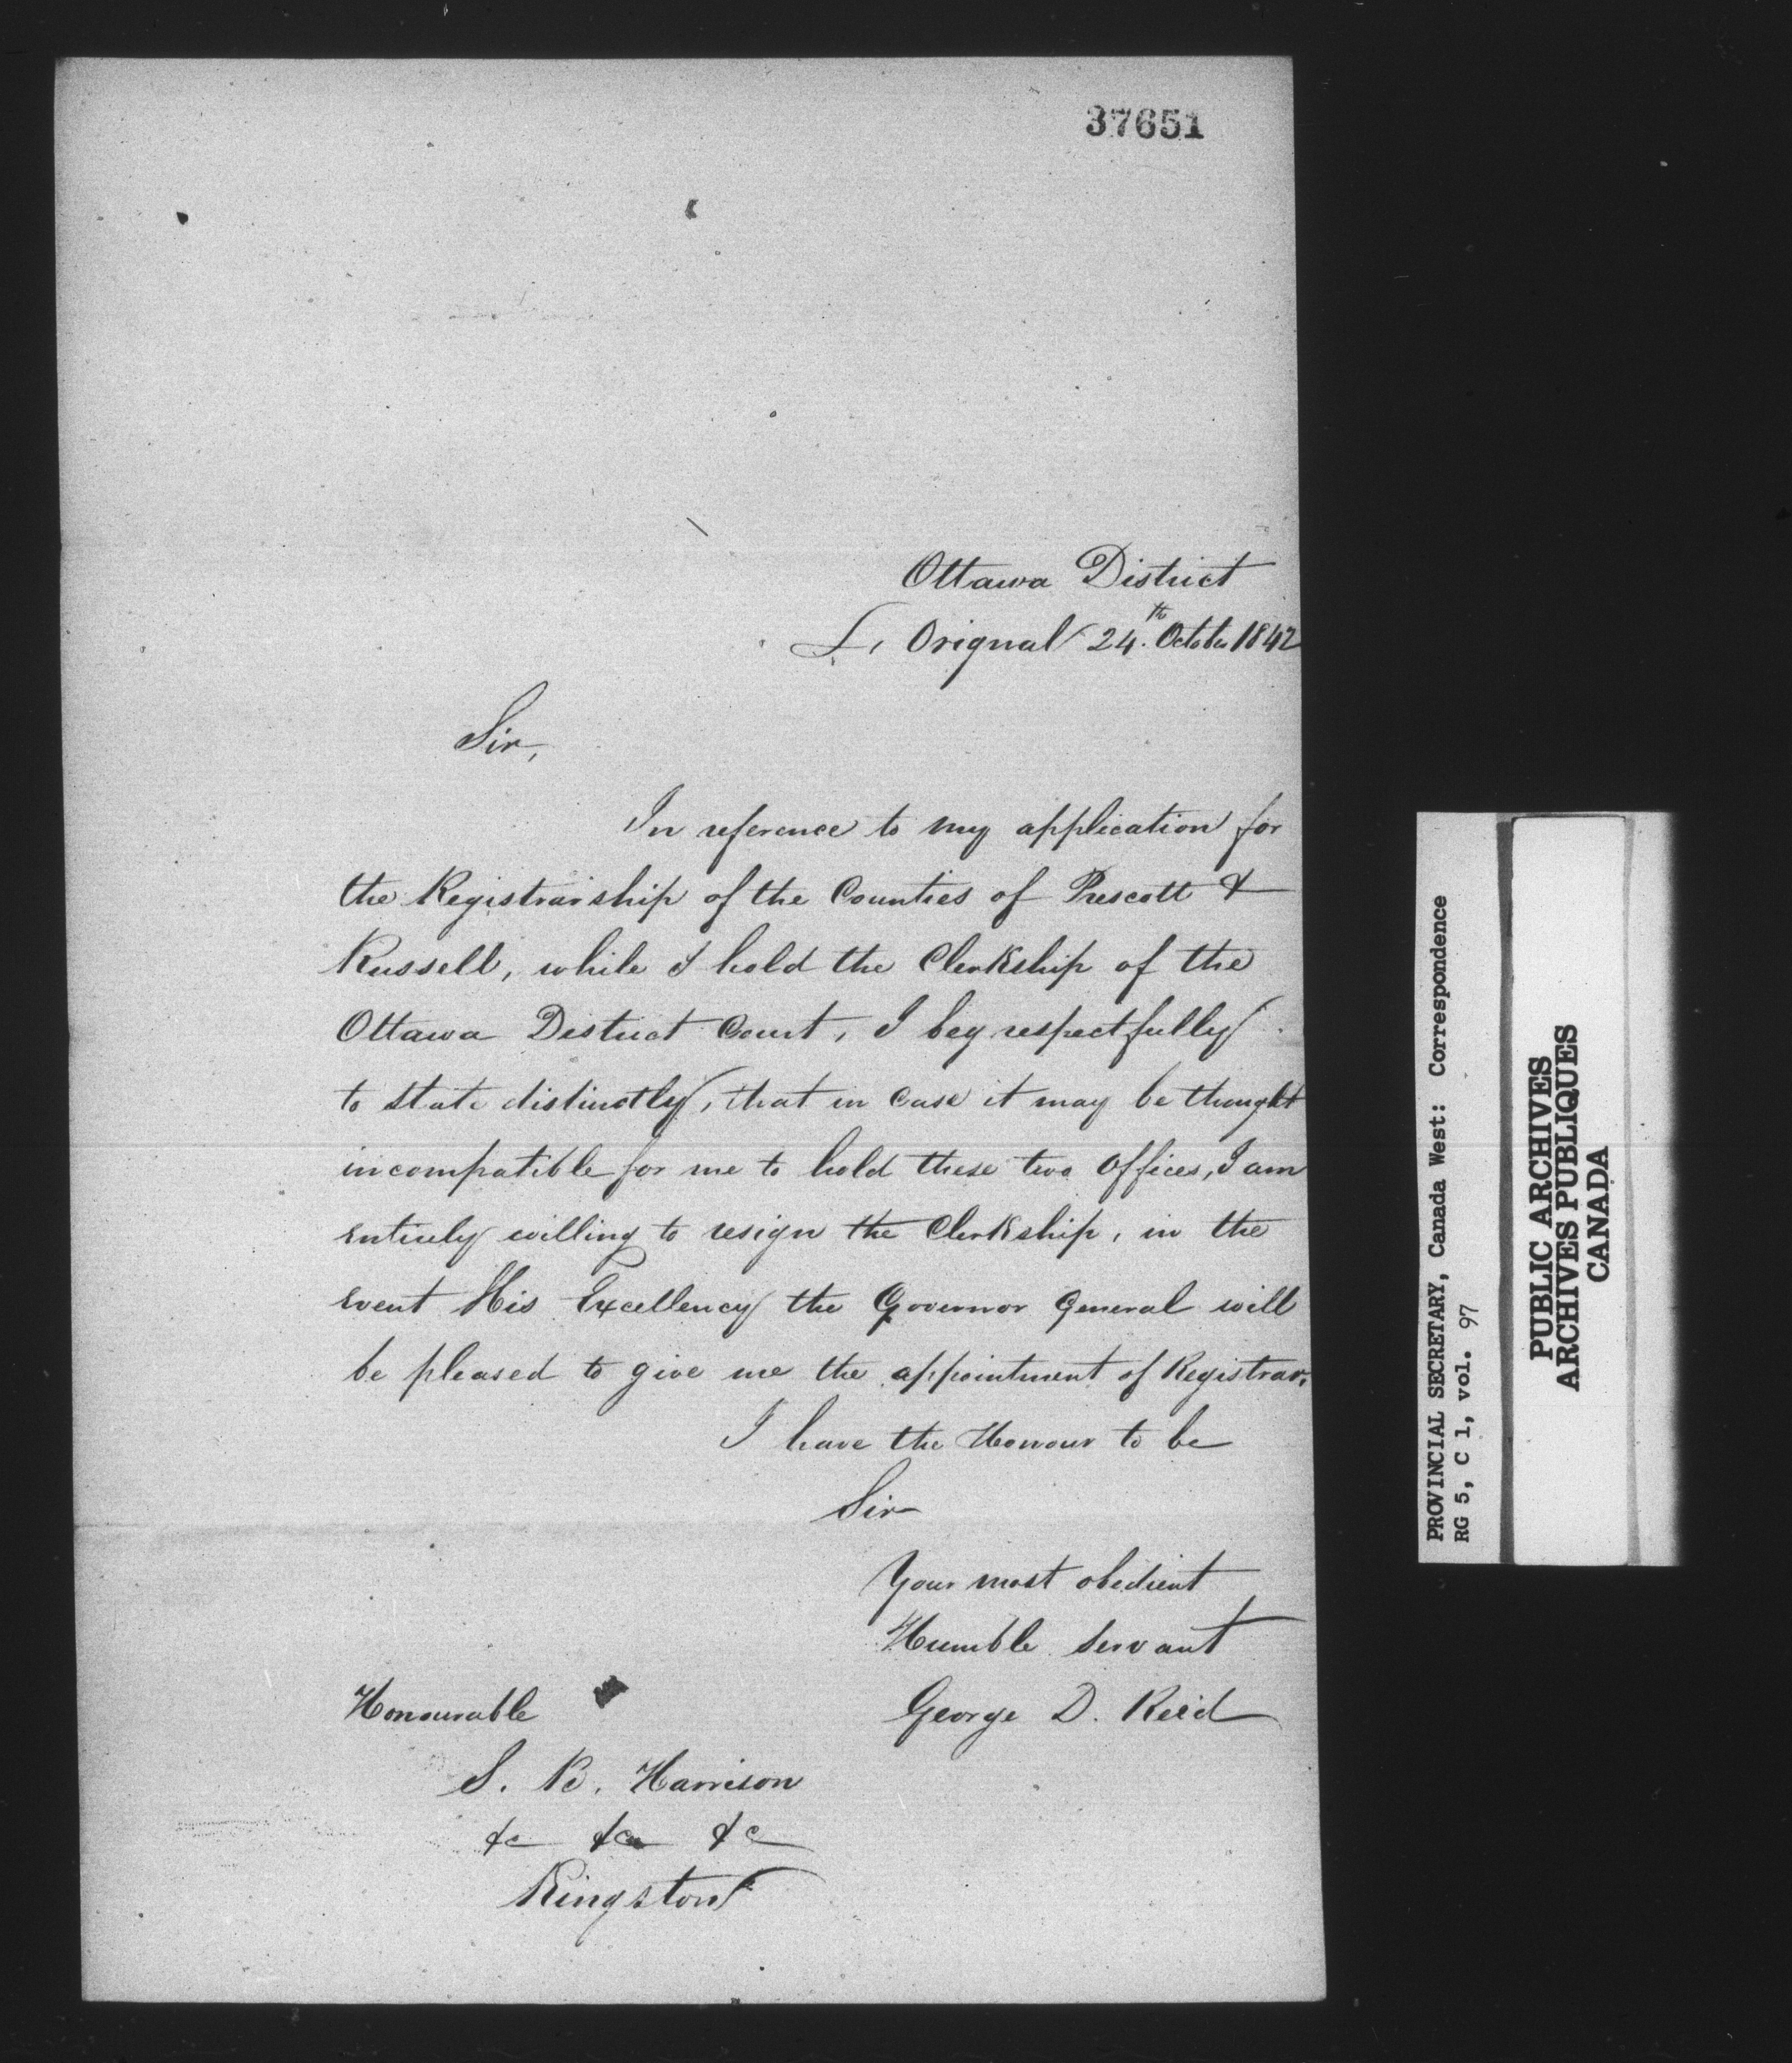 37651
Ottawa District
L'Orignal 24th October 1842
Sir,
In reference to my application for
the Registrarship of the Counties of Prescott &
Russell, while I hold the Clerkship of the
Ottawa District Court, I beg respectfully
to state distinctly, that in case it may be thought
incompatible for me to hold these two Offices, I am
entirely willing to resign the Clerkship, in the
event His Excellency the Governor General will
be pleased to give me the appointment of Registrar.
I have the Honour to be
Sir
Your most obedient
Humble Servant
George D. Reid
Honourable
S. B. Harrison
&c &c &c
Kingston
PROVINCIAL SECRETARY, Canada West: Correspondence
RG 5, C 1, vol. 97
PUBLIC ARCHIVES
ARCHIVES PUBLIQUES
CANADA